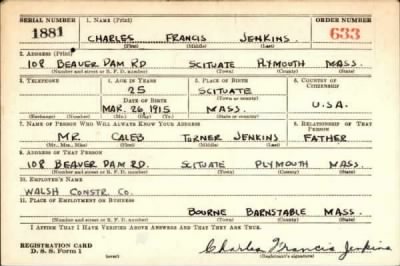 SERIAL NUMBER 1. NAME (Print) ORDER NUMBER
1881 CHARLES FRANCIS JENKINS 633
(First) (Middle) (Last)
2. ADDRESS (Print)
108 BEAVER DAM RD SCITUATE PLYMOUTH MASS.
(Number and street or R. F. D. number) (Town) (County) (State)
3. TELEPHONE 4. AGE IN YEARS 5. PLACE OF BIRTH 6. COUNTRY OF CITIZENSHIP
25 SCITUATE
DATE OF BIRTH (Town or county)
MAR. 26, 1915 MASS. U.S.A.
(Exchange) (Number) (Mo.) (Day) (Yr.) (State or country)
7. NAME OF PERSON WHO WILL ALWAYS KNOW YOUR ADDRESS 8. RELATIONSHIP OF THAT PERSON
MR. CALEB TURNER JENKINS FATHER
(Mr., Mrs., Miss) (First) (Middle) (Last)
9. ADDRESS OF THAT PERSON
108 BEAVER DAM RD. SCITUATE PLYMOUTH MASS.
(Number and street or R. F. D. number) (Town) (County) (State)
10. EMPLOYER'S NAME
WALSH CONSTR. CO.
11. PLACE OF EMPLOYMENT OR BUSINESS
BOURNE BARNSTABLE MASS.
(Number and street or R. F. D. number) (Town) (County) (State)
I AFFIRM THAT I HAVE VERIFIED ABOVE ANSWERS AND THAT THEY ARE TRUE.
REGISTRATION CARD
D. S. S. Form 1 (over) Charles Francis Jenkins
(Registrant's signature)